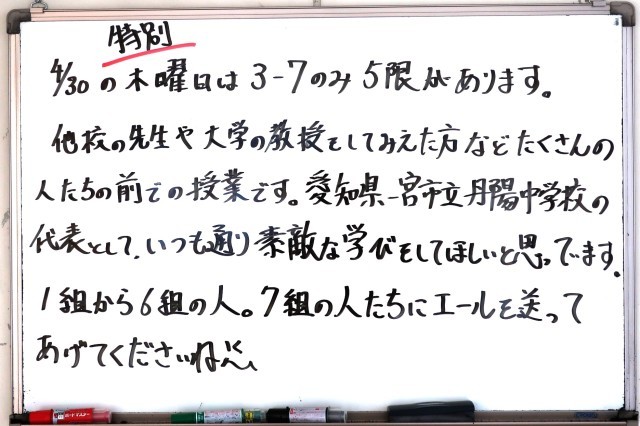 特別
4/30の木曜日は3-7のみ5限があります。
他校の先生や大学の教授をしてみえた方などたくさんの
人たちの前での授業です。愛知県一宮市立丹陽中学校の
代表として、いつも通り素敵な学びをしてほしいと思ってます。
1組から6組の人。7組の人たちにエールを送って
あげてくださいね